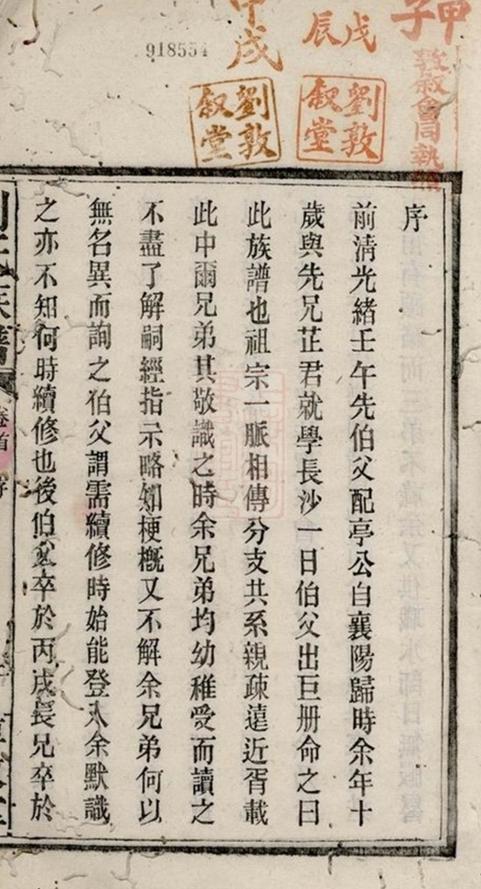 甲子
敦敘會同
戊辰
劉敦敘堂
甲戌
劉敦敘堂
918554
序
前清光緒壬午先伯父配亭公自襄陽歸時余年十
歲與先兄芷君就學長沙一日伯父出巨册命之曰
此族譜也祖宗一脈相傳分支共系親疎遠近胥載
此中爾兄弟其敬識之時余兄弟均幼稚受而讀之
不盡了解嗣經指示略知梗概又不解余兄弟何以
無名異而詢之伯父謂需續修時始能登入余默識
之亦不知何時續修也後伯父卒於丙戌長兄卒於
卷首 序